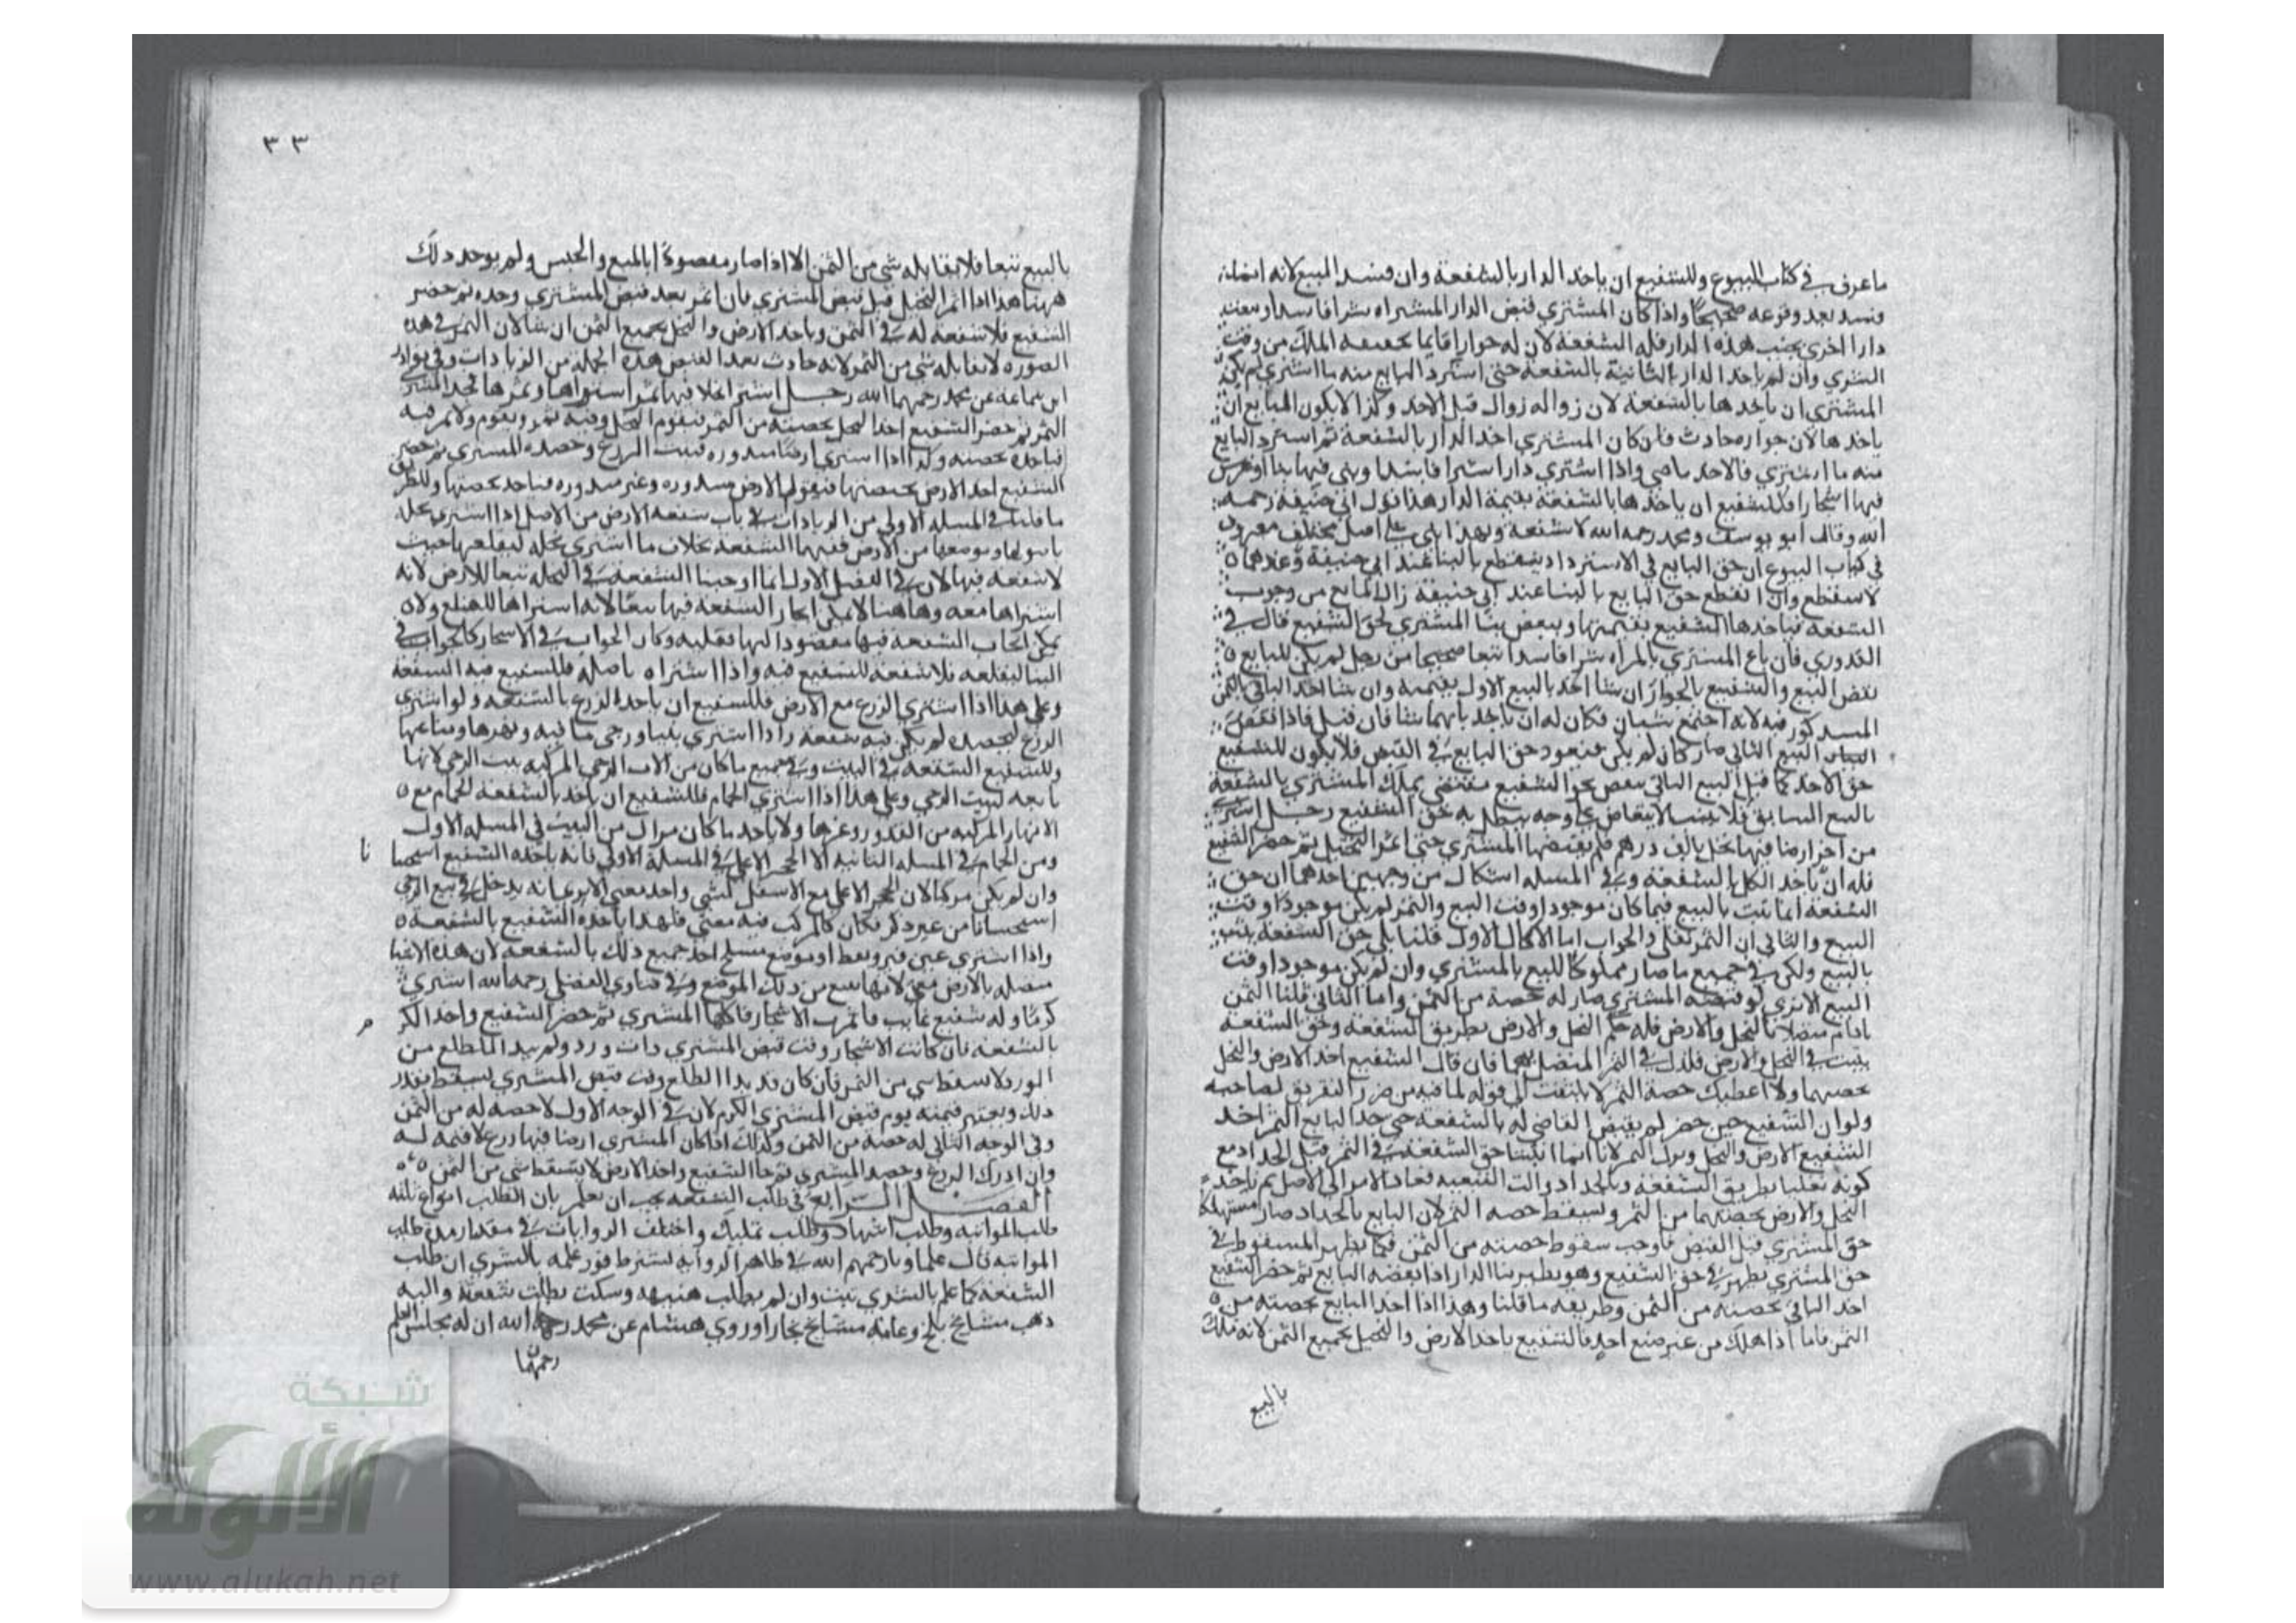 ما عرف في كتاب البيوع وللشفيع ان ياخد الدار بالشفعة وان فسد البيع لانه
فسد بعد وقوعه صحيحًا واذا كان المشتري قبض الدار المشتراه شرا فاسدا وبيعت
دارا اخرى بجنب هذه الدار فله الشفعة لان له جوارا قايما بحقيقه الملك من وقت
الشري وان لم ياخد الدار الثانية بالشفعة حتى استرد البايع منه ما اشتري لم يكن
المشتري ان ياخدها بالشفعة لان زواله زوال قبل الاخد وكذا لا يكون للبايع ان
ياخدها لان جواره حادث فان كان المشتري اخد الدار بالشفعة ثم استرد البايع
منه ما اشتري فالاخد ماضي واذا اشتري دارا شرا فاسدا وبنى فيها بنا او غرس
فيها اشجارا فللشفيع ان ياخدها بالشفعة بقيمة الدار هذا قول ابي حنيفة رحمه
الله وقال ابو يوسف ومحمد رحمه الله لا شفعة وبهدا بني علي اصل مختلف معروف
في كتاب البيوع ان حق البايع في الاسترداد ينقطع بالبنا عند ابي حنيفة وعندهما
لا ينقطع وان انقطع حق البايع بالبنا عند ابي حنيفة زال المانع من وجوب
الشفعة فياخدها الشفيع بقيمتها وينقض بنا المشتري لحق الشفيع قال في
القدوري فان باع المشتري بالمراه شرا فاسدا بيعا صحيحا من رجل لم يكن للبايع
نقض البيع والشفيع بالخيار ان شا اخد بالبيع الاول بقيمته وان شا اخد الثاني بالثمن
المدكور فيه لانه اجتمع سببان فكان له ان ياخد بايهما شا فان قيل فاذا نقض
البيع الثاني صار كان لم يكن فيعود حق البايع في القبض فلا يكون للشفيع
حق الاخد كما قبل البيع الثاني نقض بحق الشفيع مقتضي تملك المشتري بالشفعة
بالبيع السابق فلا يثبت الانتقاض علي وجه يبطل به حق الشفيع رجل اشترى
من اخر ارضا فيها نخل بالف درهم فلم يقبضها المشتري حتى اثمر النخيل ثم حضر الشفيع
فله ان ياخد الكل بالشفعة وفي المسله اشكال من وجهين احدهما ان حق
الشفعة انما يثبت بالبيع فيما كان موجودا وقت البيع والثمر لم يكن موجودًا وقت
البيع والثاني ان الثمر نقلي والجواب اما الاشكال الاول قلنا بلي حق الشفعة يثبت
بالبيع ولكن في جميع ما صار مملوكا للبيع بالمشتري وان لم يكن موجودا وقت
البيع الا تري لو قبضه المشتري صار له حصة من الثمن واما الثاني قلنا الثمن
مادام متصلا بالنخل والارض فله حكم النخل والارض بطريق الشفعه وحق الشفعه
يثبت في النخل والارض فكذلك في الثمر المتصل بهما فان قال الشفيع اخد الارض والنخل
بحصتهما ولا اعطيك حصة الثمر لا يلتفت الي قوله لما فيه من ضرر التفريق لصاحبه
ولو ان الشفيع حين حضر لم يقبض القاضي له بالشفعة حتي جد البايع الثمر اخد
الشفيع الارض والنخل وترك الثمر لانا انما اثبتنا حق الشفعة في الثمر قبل الجداد مع
كونه نقليا بطريق الشفعة وبالجداد زالت التبعيه فعاد الامر الي الاصل ثم ياخد
النخل والارض بحصتهما من الثمن وتسقط حصه الثمر لان البايع بالجداد صار مستهلكا
حق المشتري قبل القبض فاوجب سقوط حصته من الثمن فكما يظهر السقوط في
حق المشتري يظهر في حق الشفيع وهو نظير بنا الدار اذا نقضه البايع ثم حضر الشفيع
اخد الباقي بحصته من الثمن وطريقه ما قلنا وهذا اذا اخد البايع بحصته من
الثمن فاما اذا هلك من غير صنع احد فالشفيع ياخد الارض والنخيل بجميع الثمن لانه ملك
بالبيع
٣٣
بالبيع تبعا فلا يقابله شي من الثمن الا اذا صار مقصودًا بالمنع والحبس ولم يوجد دلك
ههنا هذا اذا اثمر النخيل قبل قبض المشتري فان اثمر بعد قبض المشتري وحده ثم حضر
الشفيع فلا شفعة له في الثمن وياخد الارض والنخل بجميع الثمن ان شا لان الثمر في هده
الصوره لا يقابله شي من الثمر لانه حادث بعد القبض هده الجمله من الزيادات وفي نوادر
ابن سماعة عن محمد رحمهما الله رجل اشترا نخلا فيها ثمر اشتراها وثمرها فجد المشتري
الثمر ثم حضر الشفيع اخد النخل بحصته من الثمر فيقوم النخل وفيه ثمر ويقوم ولا ثمر فيه
فياخده بحصته وكدا اذا اشتري ارضا مبدوره فنبت الزرع وحصده المشتري ثم حضر
الشفيع اخد الارض بحصتها فيقوم الارض مبدوره وغير مبدوره فياخد بحصتها والطريق
ما قلنا في المسله الاولي من الزيادات في باب شفعه الارض من الاصل اذا اشتري نخله
باصولها وموضعها من الارض ففيها الشفعه بخلاف ما اشتري نخله ليقلعها حيث
لا شفعه فيها لان في الفصل الاول انما اوجبنا الشفعه في النخله تبعا للارض لانه
اشتراها معه وها هنا لا يمكن ايجاب الشفعه فيها تبعا لانه اشتراها للقلع ولا
يمكن ايجاب الشفعه فيها مقصودا لانها نقليه وكان الجواب في الاشجار كالجواب في
البنا ليقلعه فلا شفعه للشفيع فيه واذا اشتراه باصله فللشفيع فيه الشفعه
وعلي هدا اذا اشتري الزرع مع الارض فللشفيع ان ياخد الزرع بالشفعه ولو اشترى
الزرع ليحصده لم يكن فيه شفعة واذا اشترى بيتا ورحى ما فيه ونهرها ومتاعها
وللشفيع الشفعه في البيت وفي جميع ما كان من الات الرحي المركبه ببيت الرحي لانها
تابعه لبيت الرحي وعلي هدا اذا اشتري الحمام فللشفيع ان ياخد بالشفعه الحمام مع
الانهار المركبه من القدور وغيرها ولا ياخد ما كان مزالا من البيت في المسله الاول
ومن الحمام في المسله الثانيه الا الحجر الاعلي في المسلة الاولي فانه ياخده الشفيع استحسا نا
وان لم يكن مركبا لان الحجر الاعلي مع الاسفل كشي واحد معني الا يرى انه يدخل في بيع الرحي
استحسانا من غير دكر فكان كالمركب فيه معني فلهدا ياخده الشفيع بالشفعة
واذا اشترى عين قير ونفط او موضع ملح اخد جميع ذلك بالشفعه لان هده الاشيا
متصله بالارض معني لانها تنبع من ذلك الموضع وفي فتاوي الفضلي رحمه الله اشتري
كرمًا وله شفيع غايب فاثمرت الاشجار فاكلها المشتري ثم حضر الشفيع واخد الكر م
بالشفعه فان كانت الاشجار وقت قبض المشتري دات ورد ولم يبد الطلع من
الورد لا يسقط شي من الثمن فان كان قد بدا الطلع وقت قبض المشتري يسقط بقدر
دلك ويعتبر قيمته يوم قبض المشتري الكرم لان في الوجه الاول لا حصه له من الثمن
وفي الوجه الثاني له حصه من الثمن وكذلك اذا كان المشتري ارضا فيها زرع لا قيمه له
وان ادرك الزرع وحصد المشتري ثم جا الشفيع واخد الارض لا يسقط شي من الثمن
الفصل الرابع في طلب الشفعه يجب ان يعلم بان الطلب انواع ثلثه
طلب المواثبه وطلب اشهاد وطلب تمليك واختلف الروايات في مقدار مدة طلب
المواثبه قال علماونا رحمهم الله في ظاهر الروايه يشترط فور علمه بالشري ان طلب
الشفعه كما علم بالشري يثبت وان لم يطلب هنيهه وسكت بطلت شفعته واليه
دهب مشايخ بلخ وعامة مشايخ بخارا وروي هشام عن محمد رحمه الله ان له مجلس العلم
رحمهما
شبكة
الألوكة
www.alukah.net